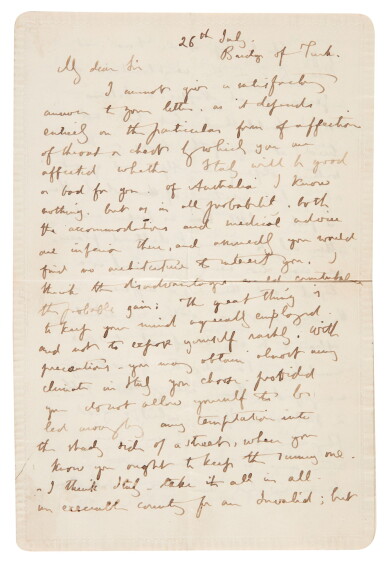 26th July.
Bridge of Turk.
My dear Sir
I cannot give a satisfactory
answer to your letter. as it depends
entirely on the particular form of affection
of throat or chest by which you are
affected whether Italy will be good
or bad for you. of Australia I know
nothing. but as in all probability. both
the accommodations and medical advice
are inferior there, and assuredly you would
find no architecture to interest you. I
think the disadvantages would counterbalance
the probable gain: The great thing is
to keep your mind agreeably employed
and not to expose yourself rashly. With
precautions - you may obtain almost any
climate in Italy you choose provided
you do not allow yourself to be
led by any temptation into
the shady side of a street, when you
know you ought to keep the sunny one.
- I think Italy - take it all in all.
an excellent country for an Invalid; but